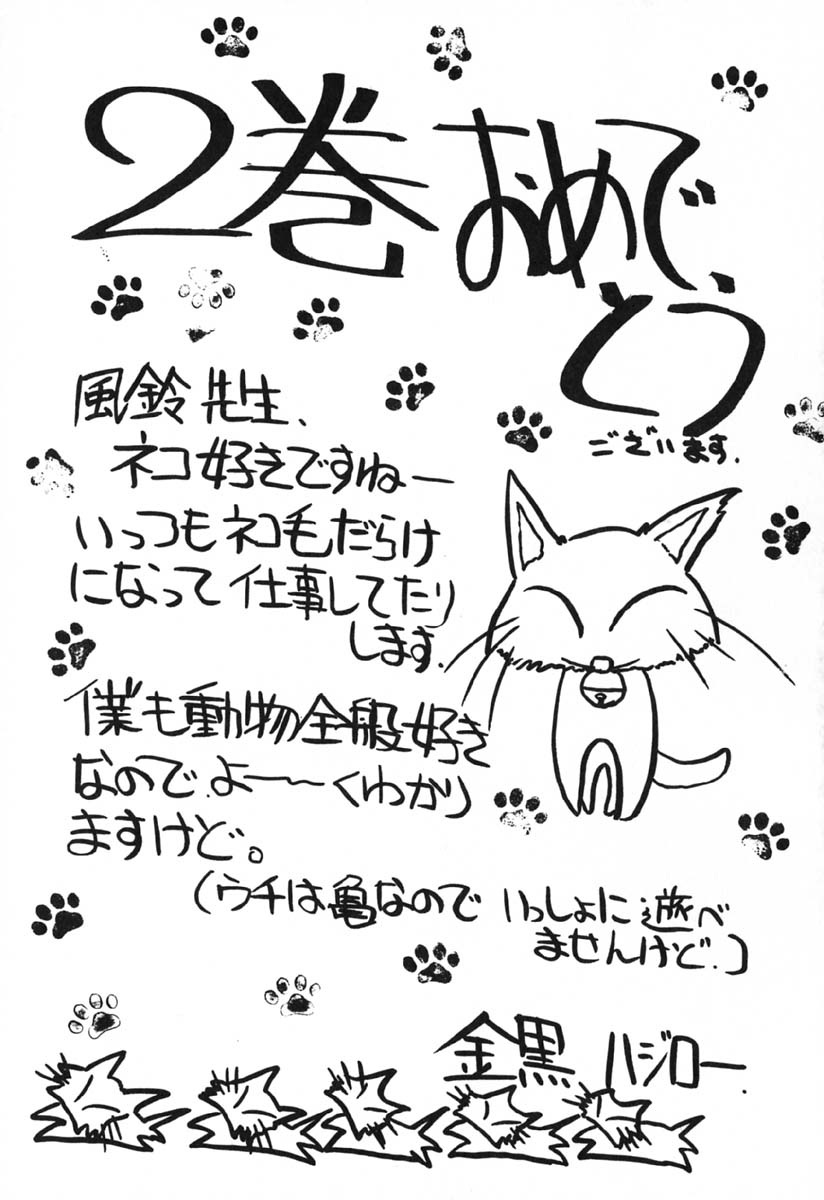 2巻おめで、
とう
ございます.
風鈴先生、
ネコ好きですねー
いっつもネコ毛だらけ
になって仕事してたり
します.
僕も動物全般好き
なので.よ――くわかり
ますけど。
(ウチは亀なので いっしょに遊べ
ませんけど.)
金黒 ハジロー.